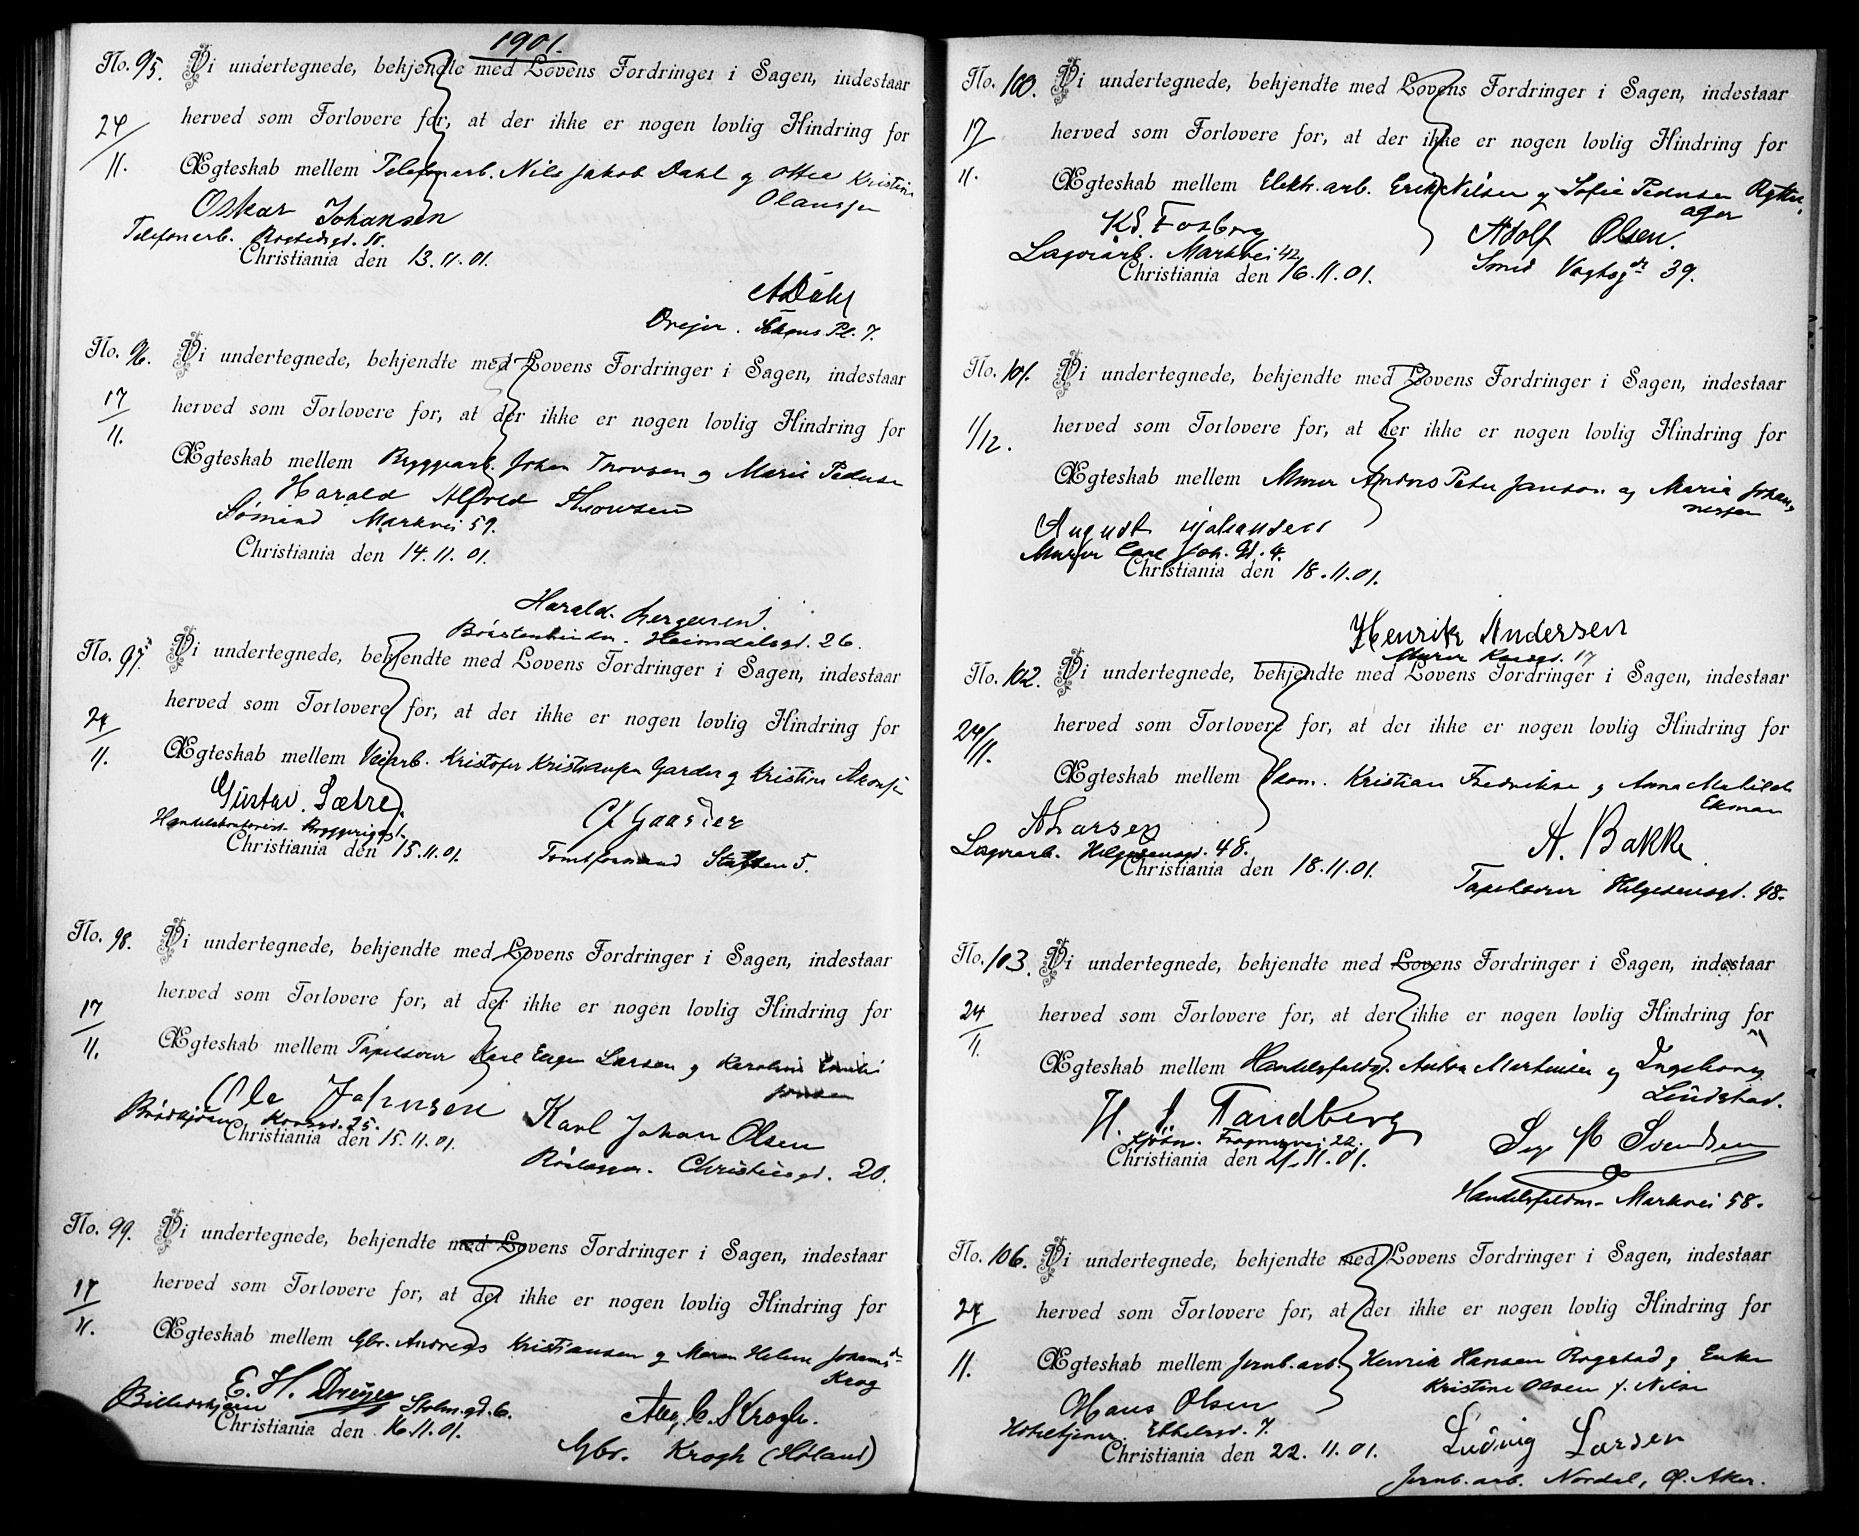 1901.
No. 95. Vi undertegnede, bekjendte med Lovens Fordringer i Sagen, indestaar
24/11. herved som Forlovere for, at der ikke er nogen lovlig Hindring for
Ægteskab mellem Telefonarb. Nils Jakob Dahl og Kristine
Olaussen
Oskar Johansen
Telefonarb.
Christiania den 13.11.01.
A Dahl
Drejer. Pl. 7.
No. 96. Vi undertegnede, bekjendte med Lovens Fordringer i Sagen, indestaar
17/11. herved som Forlovere for, at der ikke er nogen lovlig Hindring for
Ægteskab mellem Bryggearb. Johan Thovsen og Marie Pedersen
Harald Alfred Thovsen
Sømand Markvei 59.
Christiania den 14.11.01.
Harald Jørgensen.
Børstenbinder. Heimdalsgd. 26.
No. 97. Vi undertegnede, bekjendte med Lovens Fordringer i Sagen, indestaar
24/11. herved som Forlovere for, at der ikke er nogen lovlig Hindring for
Ægteskab mellem Veiarb. Kristofer Kristiansen Garder og Kristine
Gustav Sætre
Handelskontorist
Christiania den 15.11.01.
Gaarder
Tomtformand 5.
No. 98. Vi undertegnede, bekjendte med Lovens Fordringer i Sagen, indestaar
17/11. herved som Forlovere for, at der ikke er nogen lovlig Hindring for
Ægteskab mellem Tapetserer Karl Larsen og Karoline
Jensen
Ole Johnsen
Brødkjører Korsgd. 25.
Christiania den 15.11.01.
Karl Johan Olsen
Christiesgd. 20.
No. 99. Vi undertegnede, bekjendte med Lovens Fordringer i Sagen, indestaar
17/11. herved som Forlovere for, at der ikke er nogen lovlig Hindring for
Ægteskab mellem Gbr. Andreas Kristiansen og Maren Helene Johansd.
Krog
E. H. Dreyer
Holm.gd. 6.
Christiania den 16.11.01.
Aug. C. Krogh.
Gbr. Krogh (Høland)
No. 100. Vi undertegnede, bekjendte med Lovens Fordringer i Sagen, indestaar
17/11. herved som Forlovere for, at der ikke er nogen lovlig Hindring for
Ægteskab mellem Elektr. arb. Erik Nilsen og Sofie Pedersen
ager
Kd. Fosberg
Lagerarb. Markvei 42
Christiania den 16.11.01.
Adolf Olsen.
Smed Vogtsgd 39.
No. 101. Vi undertegnede, bekjendte med Lovens Fordringer i Sagen, indestaar
1/12. herved som Forlovere for, at der ikke er nogen lovlig Hindring for
Ægteskab mellem Murer Anders Peter Janson og Maria Johan-
nessen
August Johansen
Murer Carl Joh. Gd. 4.
Christiania den 18.11.01.
Henrik Andersen
Murer Korsgd. 17
No. 102. Vi undertegnede, bekjendte med Lovens Fordringer i Sagen, indestaar
24/11. herved som Forlovere for, at der ikke er nogen lovlig Hindring for
Ægteskab mellem Skom. Kristian Fredriksen og Anna Matilde
Ekman
A Larsen
Lagerarb. Helgesensgd. 48.
Christiania den 18.11.01.
A. Bakke
Tapetserer Helgesensgd. 48.
No. 103. Vi undertegnede, bekjendte med Lovens Fordringer i Sagen, indestaar
24/11. herved som Forlovere for, at der ikke er nogen lovlig Hindring for
Ægteskab mellem Handelsfuldm. Anton Martinsen og Ingeborg
Lundstad.
H. J. Tandberg
Kjøbm. Frognervei 22.
Christiania den 21.11.01.
Svendsen
Handelsfuldm. Markvei 58.
No. 106. Vi undertegnede, bekjendte med Lovens Fordringer i Sagen, indestaar
24/11. herved som Forlovere for, at der ikke er nogen lovlig Hindring for
Ægteskab mellem Jernb. arb. Henrik Hansen Rogstad og Enke
Kristine Olsen f. Nilsen
Hans Olsen
Hoteltjener. 7.
Christiania den 22.11.01.
Ludvig Larsen
Jernb. arb. Nordal, Ø. Aker.